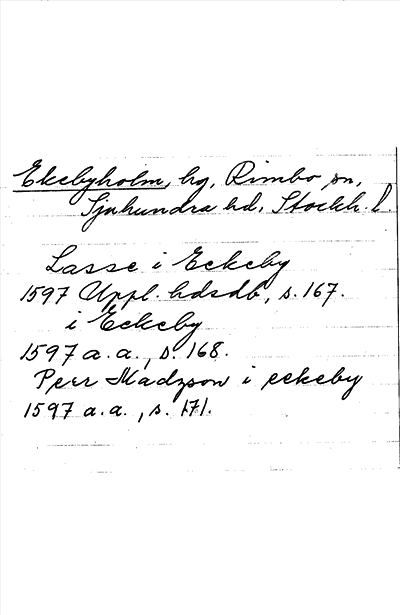 Ekebyholm, hg, Rimbo sn,
Sjuhundra hd, Stockh. l.
Lasse i Eekeby
1597 Uppl. hdsdb, s. 167.
i Eekeby
1597 a. a., s. 168.
Peer Madzson i eekeby
1597 a. a., s. 171.